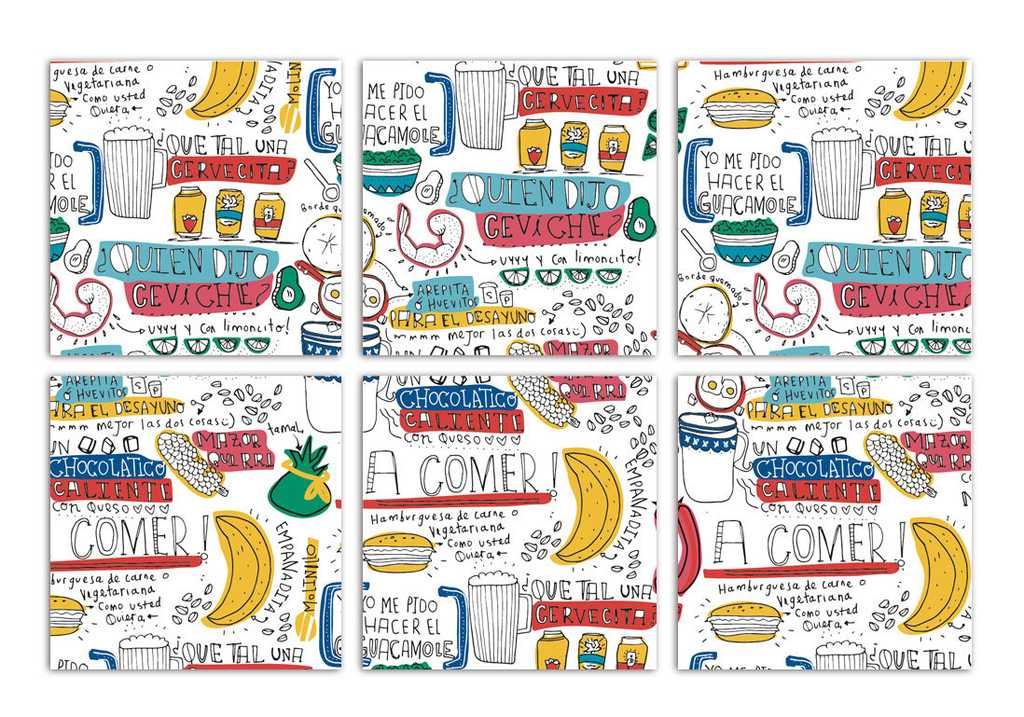 Hamburguesa de carne o
Vegetariana
Como usted
Quiera
EMPANADITA
MOLINILLO
YO ME PIDO
HACER EL
GUACAMOLE
¿QUE TAL UNA
CERVECITA?
Borde quemado
¿QUIEN DIJO
CEVICHE?
uyyy y con limoncito!
ME PIDO
ACER EL
UACAMOLE
¿QUE TAL UNA
CERVECITA?
¿QUIEN DIJO
CEVICHE?
uyyy y con limoncito!
AREPITA
ó HUEVITO
S P
PARA EL DESAYUNO
mmmm mejor las dos cosas:)
MAZOR
Hamburguesa de carne o
Vegetariana
Como usted
Quiera
YO ME PIDO
HACER EL
GUACAMOLE
¿QUE TAL UNA
CERVECITA
Borde quemado
¿QUIEN DIJO
CEVICHE
uyyy y con limonc
AREPITA
ó HUEVITO
S P
PARA EL DESAYUNO
mmmm mejor las dos cosas:)
UN
CHOCOLATICO
CALIENTE
con Queso
MAZOR
QUIRRI
tamal
COMER!
burguesa de carne o
Vegetariana
Como usted
Quiera
EMPANADITA
MOLINILLO
¿QUE TAL UNA
UN
CHOCOLATICO
CALIENTE
con Queso
MAZOR
QUIRRI
A COMER!
Hamburguesa de carne o
Vegetariana
Como usted
Quiera
EMPANADITA
YO ME PIDO
HACER EL
GUACAMOLE
¿QUE TAL UNA
CERVECITA?
AREPITA
ó HUEVITO
S P
PARA EL DESAYUNO
mmmm mejor las dos cosas:)
UN
CHOCOLATICO
CALIENTE
con Queso
MAZOR
QUIRR
A COMER!
Hamburguesa de carne o
Vegetariana
Como usted
Quiera
YO ME PIDO
¿QUE TAL UNA
CERVECITA